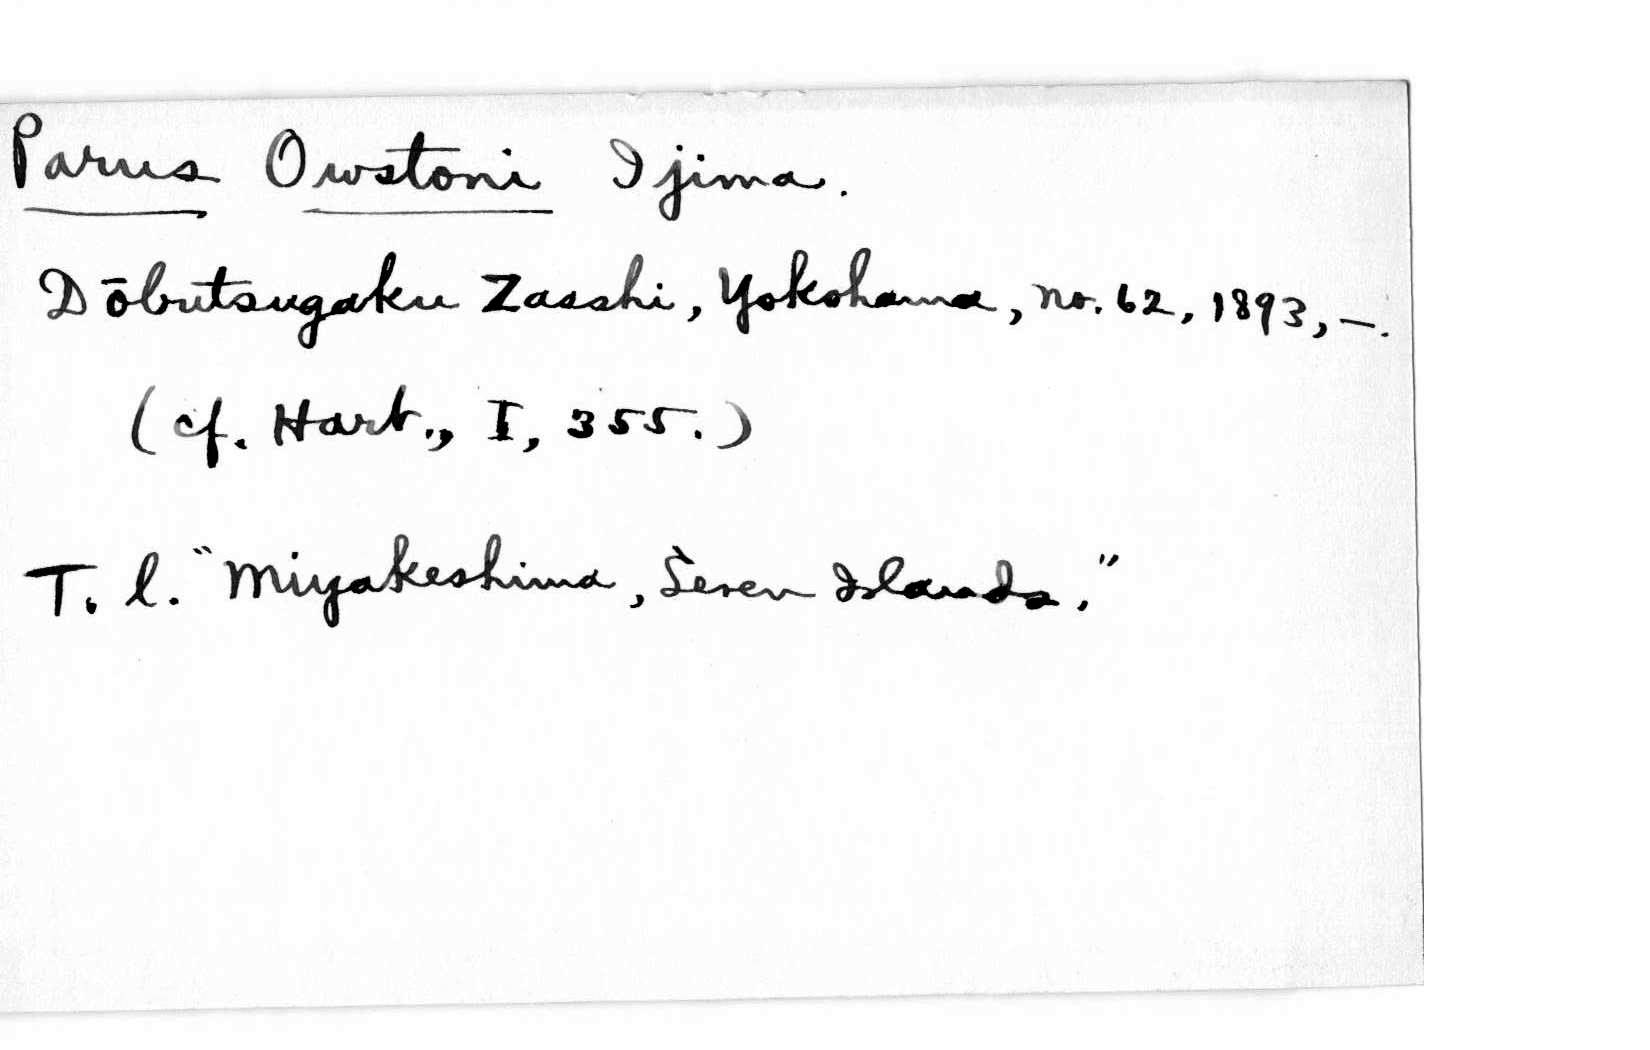 Parus Owstoni Ijima.
Dōbutsugaku Zasshi, Yokohama, no. 62, 1893, —.
(cf. Hart., I, 355.)
T. l. "Miyakeshima, Seven Islands."